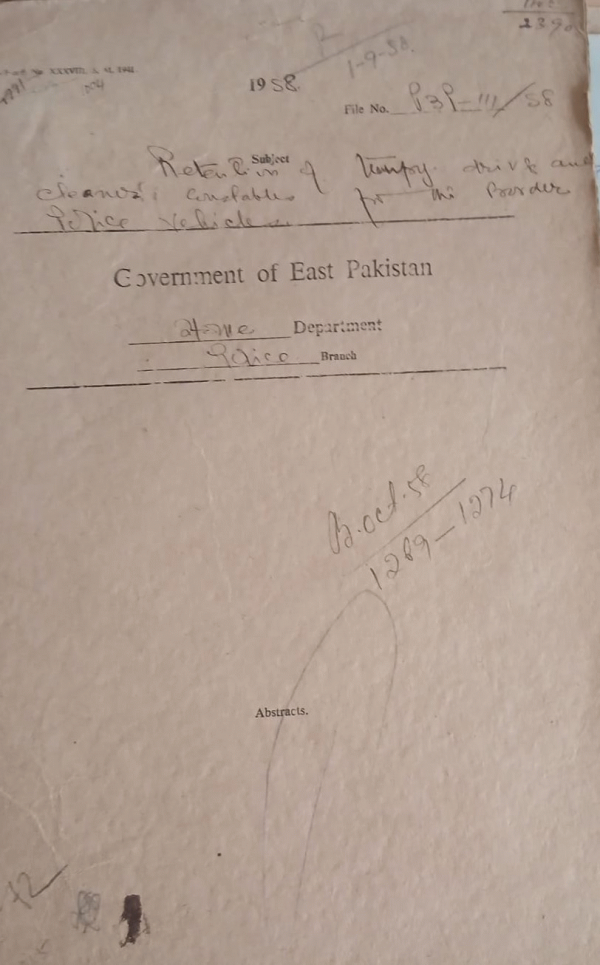 239
1-9-58.
1958.
File No. P3P-111/58
Subject
Retention of tempy. drive and
cleaner constables for the Border
Police vehicles
Government of East Pakistan
Home Department
Police Branch
B. Oct. 58
1269-1274
Abstracts.